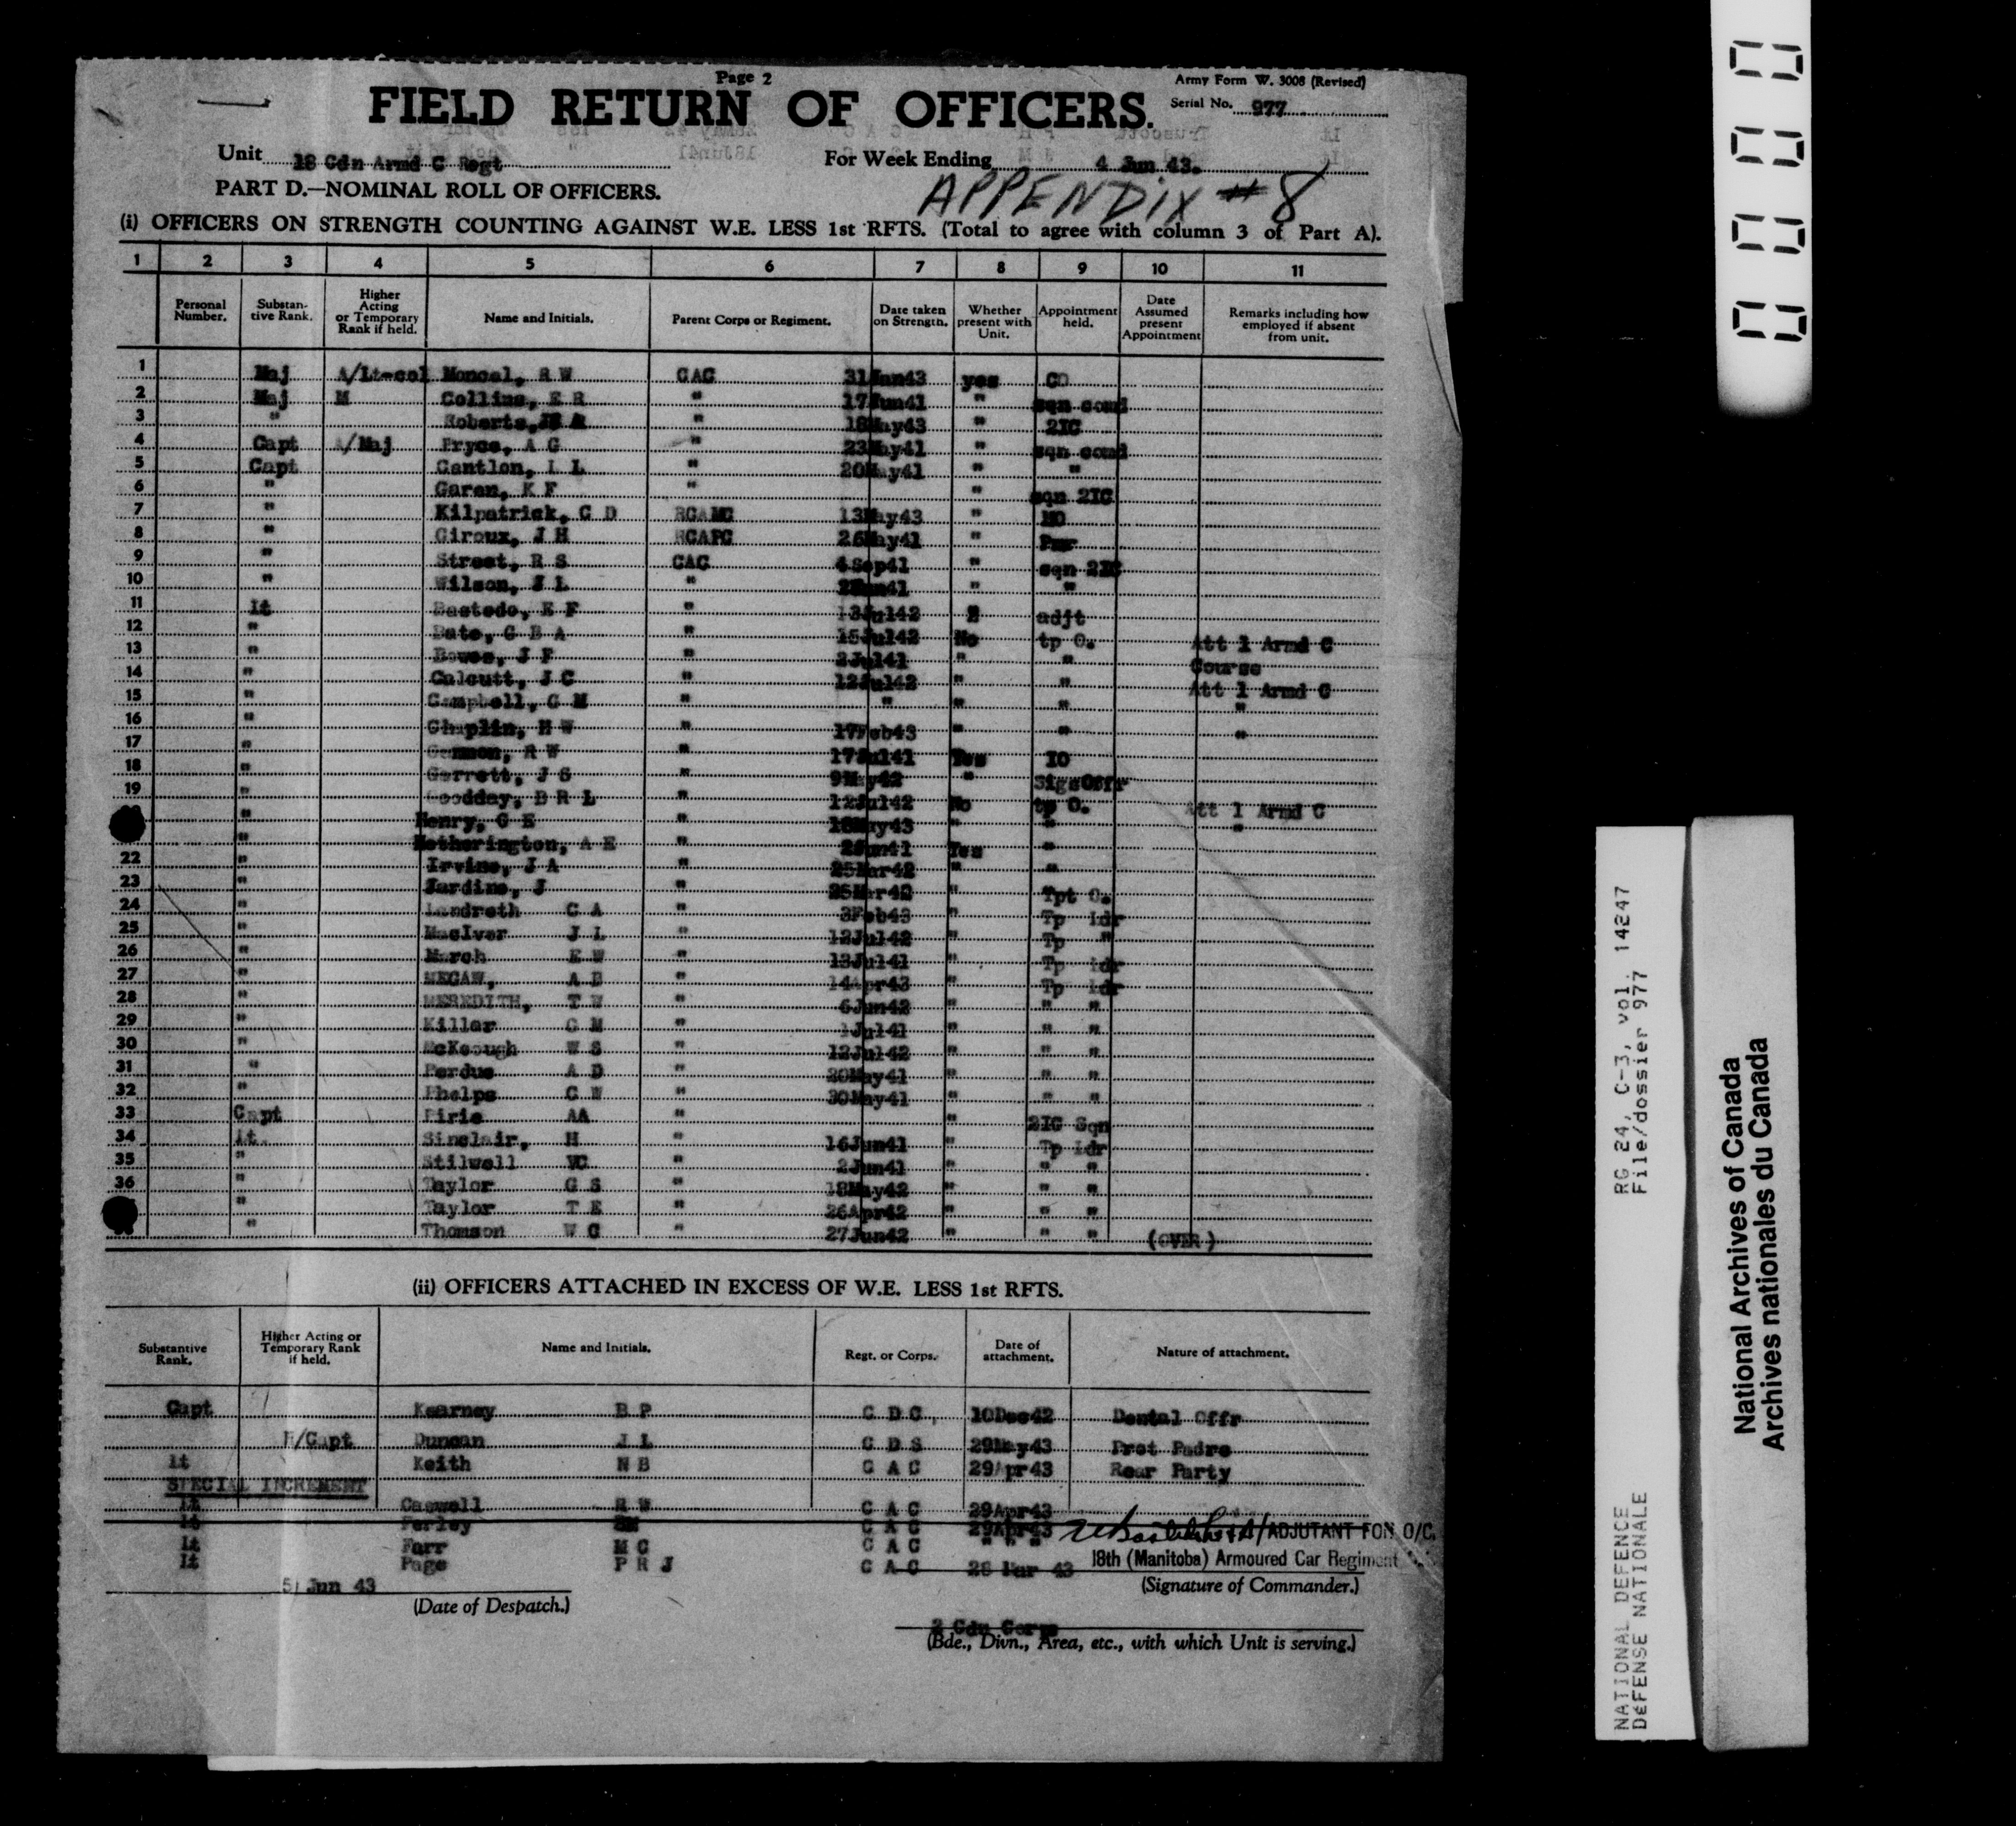 Page 2
Army Form W. 3008 (Revised)
FIELD RETURN OF OFFICERS.
Serial No. 977
Unit 18 Cdn Armd C Regt For Week Ending 4 Jun 43.
PART D.—NOMINAL ROLL OF OFFICERS.
APPENDIX #8
(i) OFFICERS ON STRENGTH COUNTING AGAINST W.E. LESS 1st RFTS. (Total to agree with column 3 of Part A).
1 2 3 4 5 6 7 8 9 10 11
Personal Number. Substan-tive Rank. Higher Acting or Temporary Rank if held. Name and Initials. Parent Corps or Regiment. Date taken on Strength. Whether present with Unit. Appointment held. Date Assumed present Appointment Remarks including how employed if absent from unit.
1 Maj A/Lt-col Moncel, R W CAC 31Jan43 yes CO
2 Maj M Collins, E R " 17Jun41 " sqn comd
3 " Roberts, " 18May43 " 2IC
4 Capt A/Maj Pryce, A G " 23May41 " sqn comd
5 Capt Cantlon, L L " 20May41 " "
6 " Garen, K F " " sqn 2IC
7 " Kilpatrick, C D RCAMC 13May43 " MO
8 " Giroux, J H RCAPC 26May41 " Pmr
9 " Street, R S CAC 4Sep41 " sqn 2IC
10 " Wilson, J L " 2Jun41 " "
11 Lt Bastedo, E F " 13Jul42 " adjt
12 " Bate, G B A " 15Jul42 No tp O. Att 1 Armd C
13 " Bowes, J F " 2Jul41 " " Course
14 " Calcutt, J C " 12Jul42 " " Att 1 Armd C
15 " Campbell, G M " " " " "
16 " Chaplin, H W " 17Feb43 " " "
17 " Gammon, R W " 17Jul41 Yes IO
18 " Garrett, J S " 9May42 " SigsOffr
19 " Goodday, B R L " 12Jul42 No tp O. Att 1 Armd C
" Henry, G E " 18May43 " " "
" Hetherington, A E " 2Jun41 Yes "
22 " Irvine, J A " 25Mar42 " "
23 " Jardine, J " 25Mar42 " Tpt O.
24 " Landreth C A " 3Feb43 " Tp ldr
25 " MacIver J L " 12Jul42 " Tp "
26 " March E W " 13Jul41 " Tp ldr
27 " MEGAW, A B " 14Apr43 " Tp ldr
28 " MEREDITH, T W " 6Jun42 " " "
29 " Millar G M " 1Jul41 " " "
30 " McKeough W S " 12Jul42 " " "
31 " Perdue A D " 20May41 " " "
32 " Phelps G W " 30May41 " " "
33 Capt Pirie AA " " 2IC Sqn
34 Lt. Sinclair, H " 16Jun41 " Tp Ldr
35 " Stilwell VC " 2Jun41 " " "
36 " Taylor G S " 18May42 " " "
" Taylor T E " 26Apr42 " " "
" Thomson W G " 27Jun42 " " " (OVER)
(ii) OFFICERS ATTACHED IN EXCESS OF W.E. LESS 1st RFTS.
Substantive Rank. Higher Acting or Temporary Rank if held. Name and Initials. Regt. or Corps. Date of attachment. Nature of attachment.
Capt Kearney B P C D C 10Dec42 Dental Offr
H/Capt Duncan J L C D S 29May43 Prot Padre
Lt Keith N B C A C 29Apr43 Rear Party
SPECIAL INCREMENT
Lt Caswell R W C A C 29Apr43
Lt Ferley C A C 29Apr43
ADJUTANT FOR O/C.
Lt Farr M C C A C " " "
18th (Manitoba) Armoured Car Regiment
Lt Page P R J C A C 28 Mar 43
5 Jun 43
(Signature of Commander.)
(Date of Despatch.)
2 Cdn Corps
(Bde., Divn., Area, etc., with which Unit is serving.)
0000
NATIONAL DEFENCE RG 24, C-3, vol. 14247
DéFENSE NATIONALE File/dossier 977
National Archives of Canada
Archives nationales du Canada